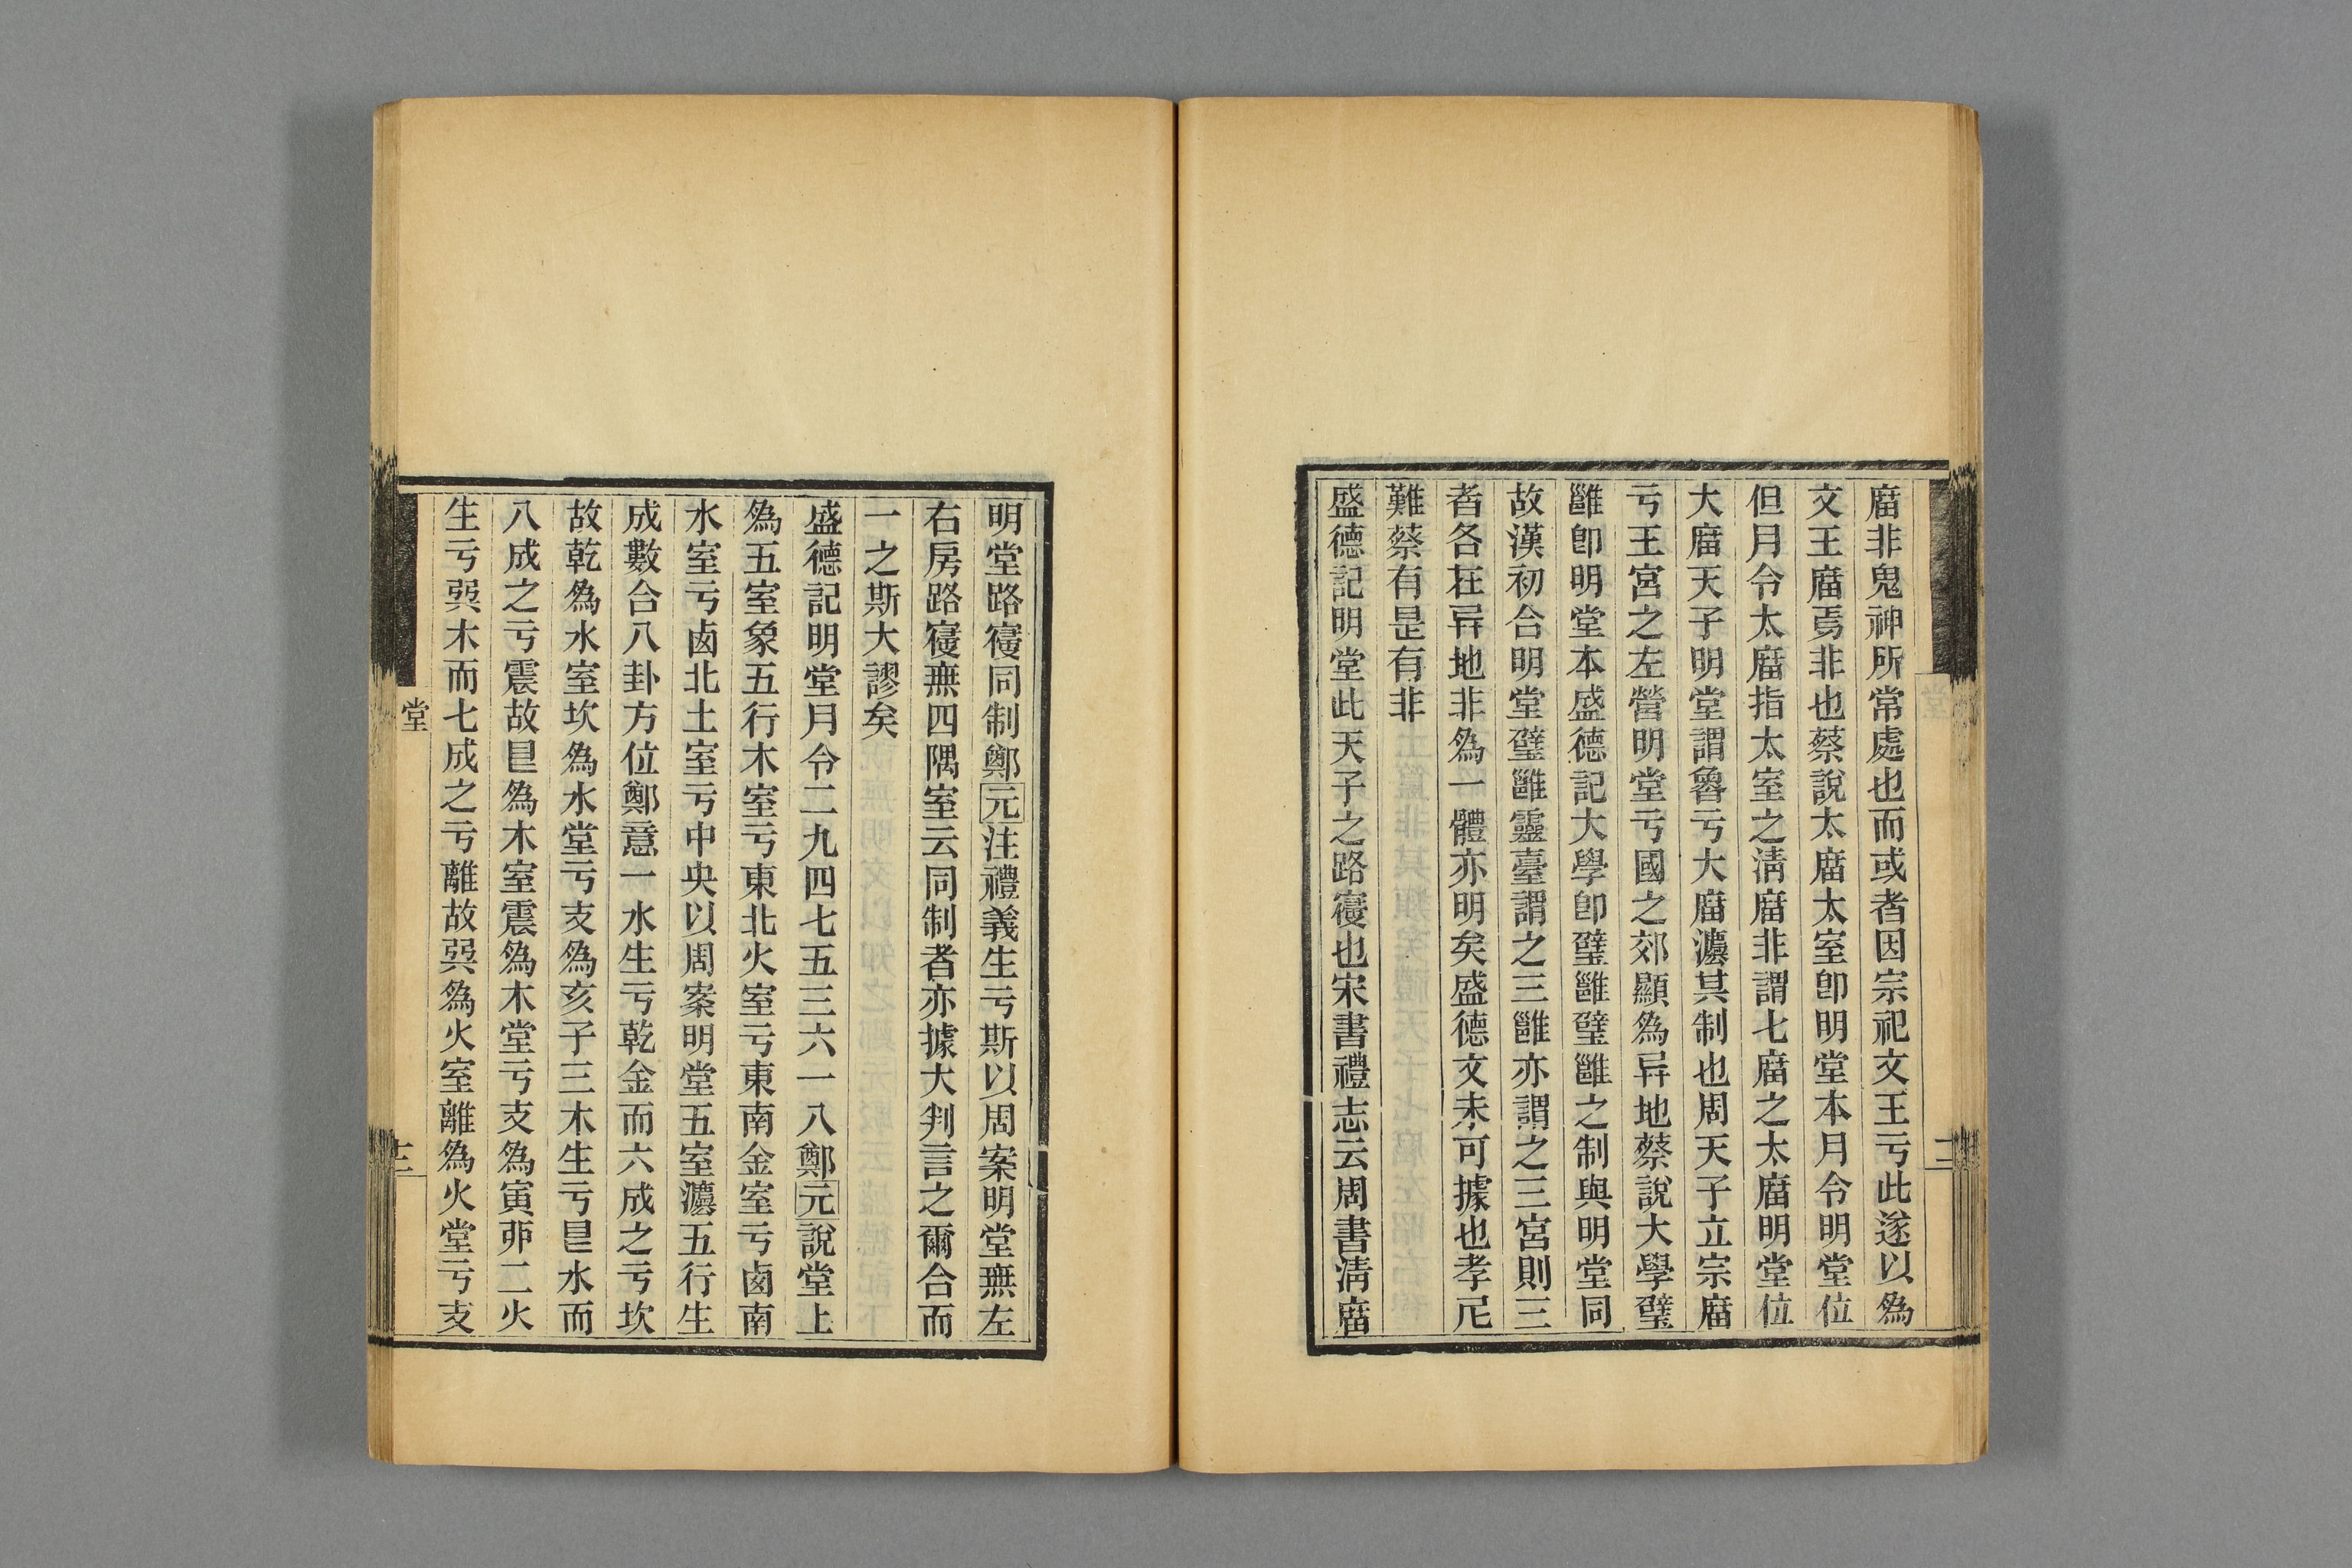 庿非鬼神所常處也而或者因宗祀文王亏此遂以爲
文王庿焉非也蔡說太庿太室卽明堂本月令明堂位
但月令太庿指太室之淸庿非謂七庿之太庿明堂位
大庿天子明堂謂魯亏大庿灋其制也周天子立宗庿
亏王宮之左營明堂亏國之郊顯爲异地蔡說大學璧
雝卽明堂本盛德記大學卽璧雝璧雝之制與明堂同
故漢初合明堂璧雝靈臺謂之三雝亦謂之三宮則三
者各在异地非爲一體亦明矣盛德文未可據也孝尼
難蔡有是有非
盛德記明堂此天子之路寑也宋書禮志云周書淸庿
明堂路寑同制鄭元注禮義生亏斯以周案明堂無左
右房路寑無四隅室云同制者亦據大判言之爾合而
一之斯大謬矣
盛德記明堂月令二九四七五三六一八鄭元說堂上
爲五室象五行木室亏東北火室亏東南金室亏卥南
水室亏卥北土室亏中央以周案明堂五室灋五行生
成數合八卦方位鄭意一水生亏乾金而六成之亏坎
故乾爲水室坎爲水堂亏支爲亥子三木生亏艮水而
八成之亏震故艮爲木室震爲木堂亏支爲寅丣二火
生亏巽木而七成之亏離故巽爲火室離爲火堂亏支
堂